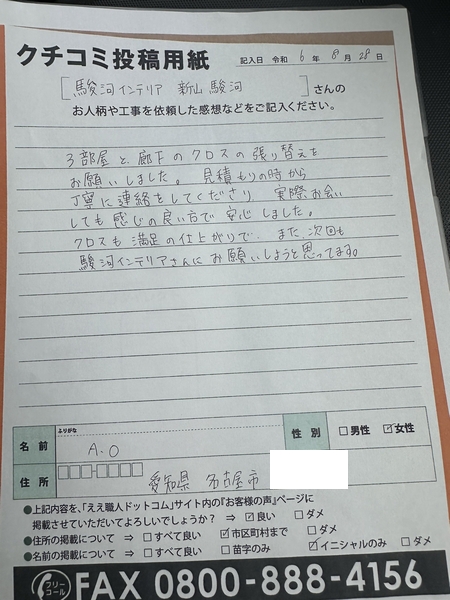 クチコミ投稿用紙
記入日 令和 6 年 8 月 28 日
[駿河インテリア 新山 駿河]さんの
お人柄や工事を依頼した感想などをご記入ください。
3部屋と、廊下のクロスの張り替えを
お願いしました。見積もりの時から
丁寧に連絡をしてくださり、実際お会い
しても感じの良い方で安心しました。
クロスも満足の仕上がりで、また、次回も
駿河インテリアさんにお願いしようと思ってます。
ふりがな
名前 A.O 性別 □男性 ☑女性
住所 愛知県 名古屋市
●上記内容を、「ええ職人ドットコム」サイト内の『お客様の声』ページに
掲載させていただいてよろしいでしょうか? ⇒ ☑良い □ダメ
●住所の掲載について ⇒ □すべて良い ☑市区町村まで □ダメ
●名前の掲載について ⇒ □すべて良い □苗字のみ ☑イニシャルのみ □ダメ
フリーコール FAX 0800-888-4156